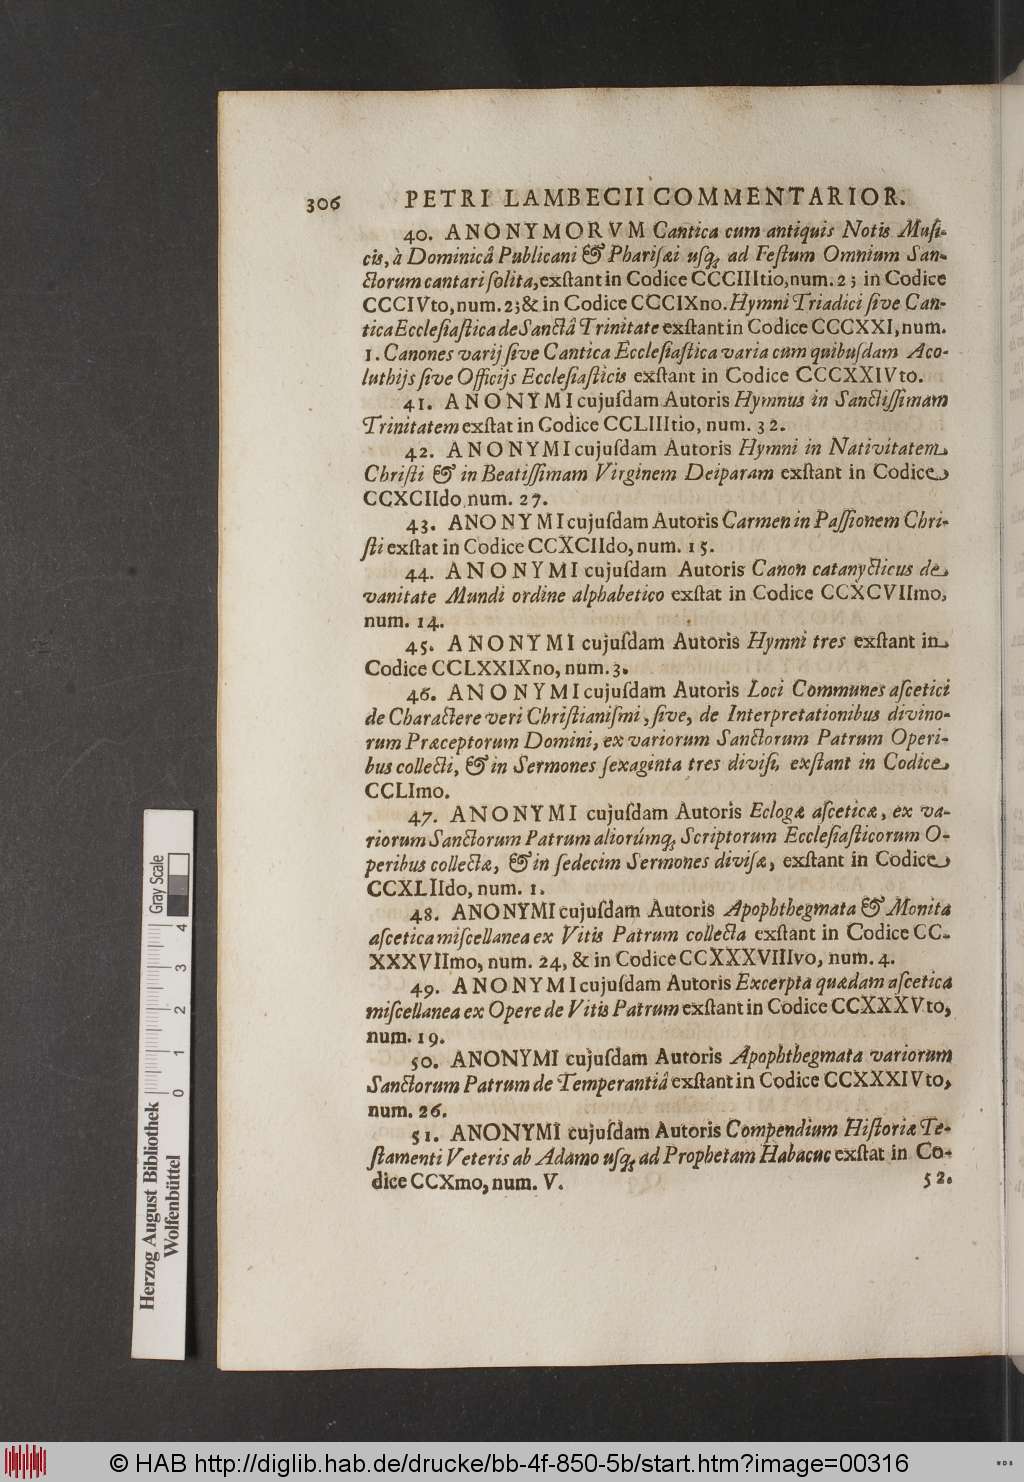 306 PETRI LAMBECII COMMENTARIOR.
40. ANONYMORVM Cantica cum antiquis Notis Muſi-
cis, à Dominicâ Publicani & Phariſæi uſq; ad Feſtum Omnium San-
ctorum cantari ſolita, exſtant in Codice CCCIIItio, num. 23 in Codice
CCCIVto, num. 23 & in Codice CCCIXno. Hymni Triadici ſive Can-
tica Eccleſiaſtica de Sanctâ Trinitate exſtant in Codice CCCXXI, num.
1. Canones varij ſive Cantica Eccleſiaſtica varia cum quibuſdam Aco-
luthijs ſive Officijs Eccleſiaſticis exſtant in Codice CCCXXIVto.
41. ANONYMI cujuſdam Autoris Hymnus in Sanctiſſimam
Trinitatem exſtat in Codice CCLIIItio, num. 32.
42. ANONYMI cujuſdam Autoris Hymni in Nativitatem
Chriſti & in Beatiſſimam Virginem Deiparam exſtant in Codice
CCXCIIdo, num. 27.
43. ANONYMI cujuſdam Autoris Carmen in Paſſionem Chri-
ſti exſtat in Codice CCXCIIdo, num. 15.
44. ANONYMI cujuſdam Autoris Canon catanycticus de
vanitate Mundi ordine alphabetico exſtat in Codice CCXCVIImo,
num. 14.
45. ANONYMI cujuſdam Autoris Hymni tres exſtant in
Codice CCLXXIXno, num. 3.
46. ANONYMI cujuſdam Autoris Loci Communes aſcetici
de Charactere veri Chriſtianiſmi, ſive, de Interpretationibus divino-
rum Præceptorum Domini, ex variorum Sanctorum Patrum Operi-
bus collecti, & in Sermones ſexaginta tres diviſi, exſtant in Codice
CCLImo.
47. ANONYMI cujuſdam Autoris Eclogæ aſceticæ, ex va-
riorum Sanctorum Patrum aliorúmq; Scriptorum Eccleſiaſticorum O-
peribus collectæ, & in ſedecim Sermones diviſæ, exſtant in Codice
CCXLIIdo, num. 1.
48. ANONYMI cujuſdam Autoris Apophthegmata & Monita
aſcetica miſcellanea ex Vitis Patrum collecta exſtant in Codice CC-
XXXVIImo, num. 24, & in Codice CCXXXVIIIvo, num. 4.
49. ANONYMI cujuſdam Autoris Excerpta quædam aſcetica
miſcellanea ex Opere de Vitis Patrum exſtant in Codice CCXXXVto,
num. 19.
50. ANONYMI cujuſdam Autoris Apophthegmata variorum
Sanctorum Patrum de Temperantiâ exſtant in Codice CCXXXIVto,
num. 26.
51. ANONYMI cujuſdam Autoris Compendium Hiſtoriæ Te-
ſtamenti Veteris ab Adamo uſq; ad Prophetam Habacuc exſtat in Co-
dice CCXmo, num. V.
52.
Herzog August Bibliothek
Wolfenbüttel
0 1 2 3 4
Gray Scale
© HAB http://diglib.hab.de/drucke/bb-4f-850-5b/start.htm?image=00316